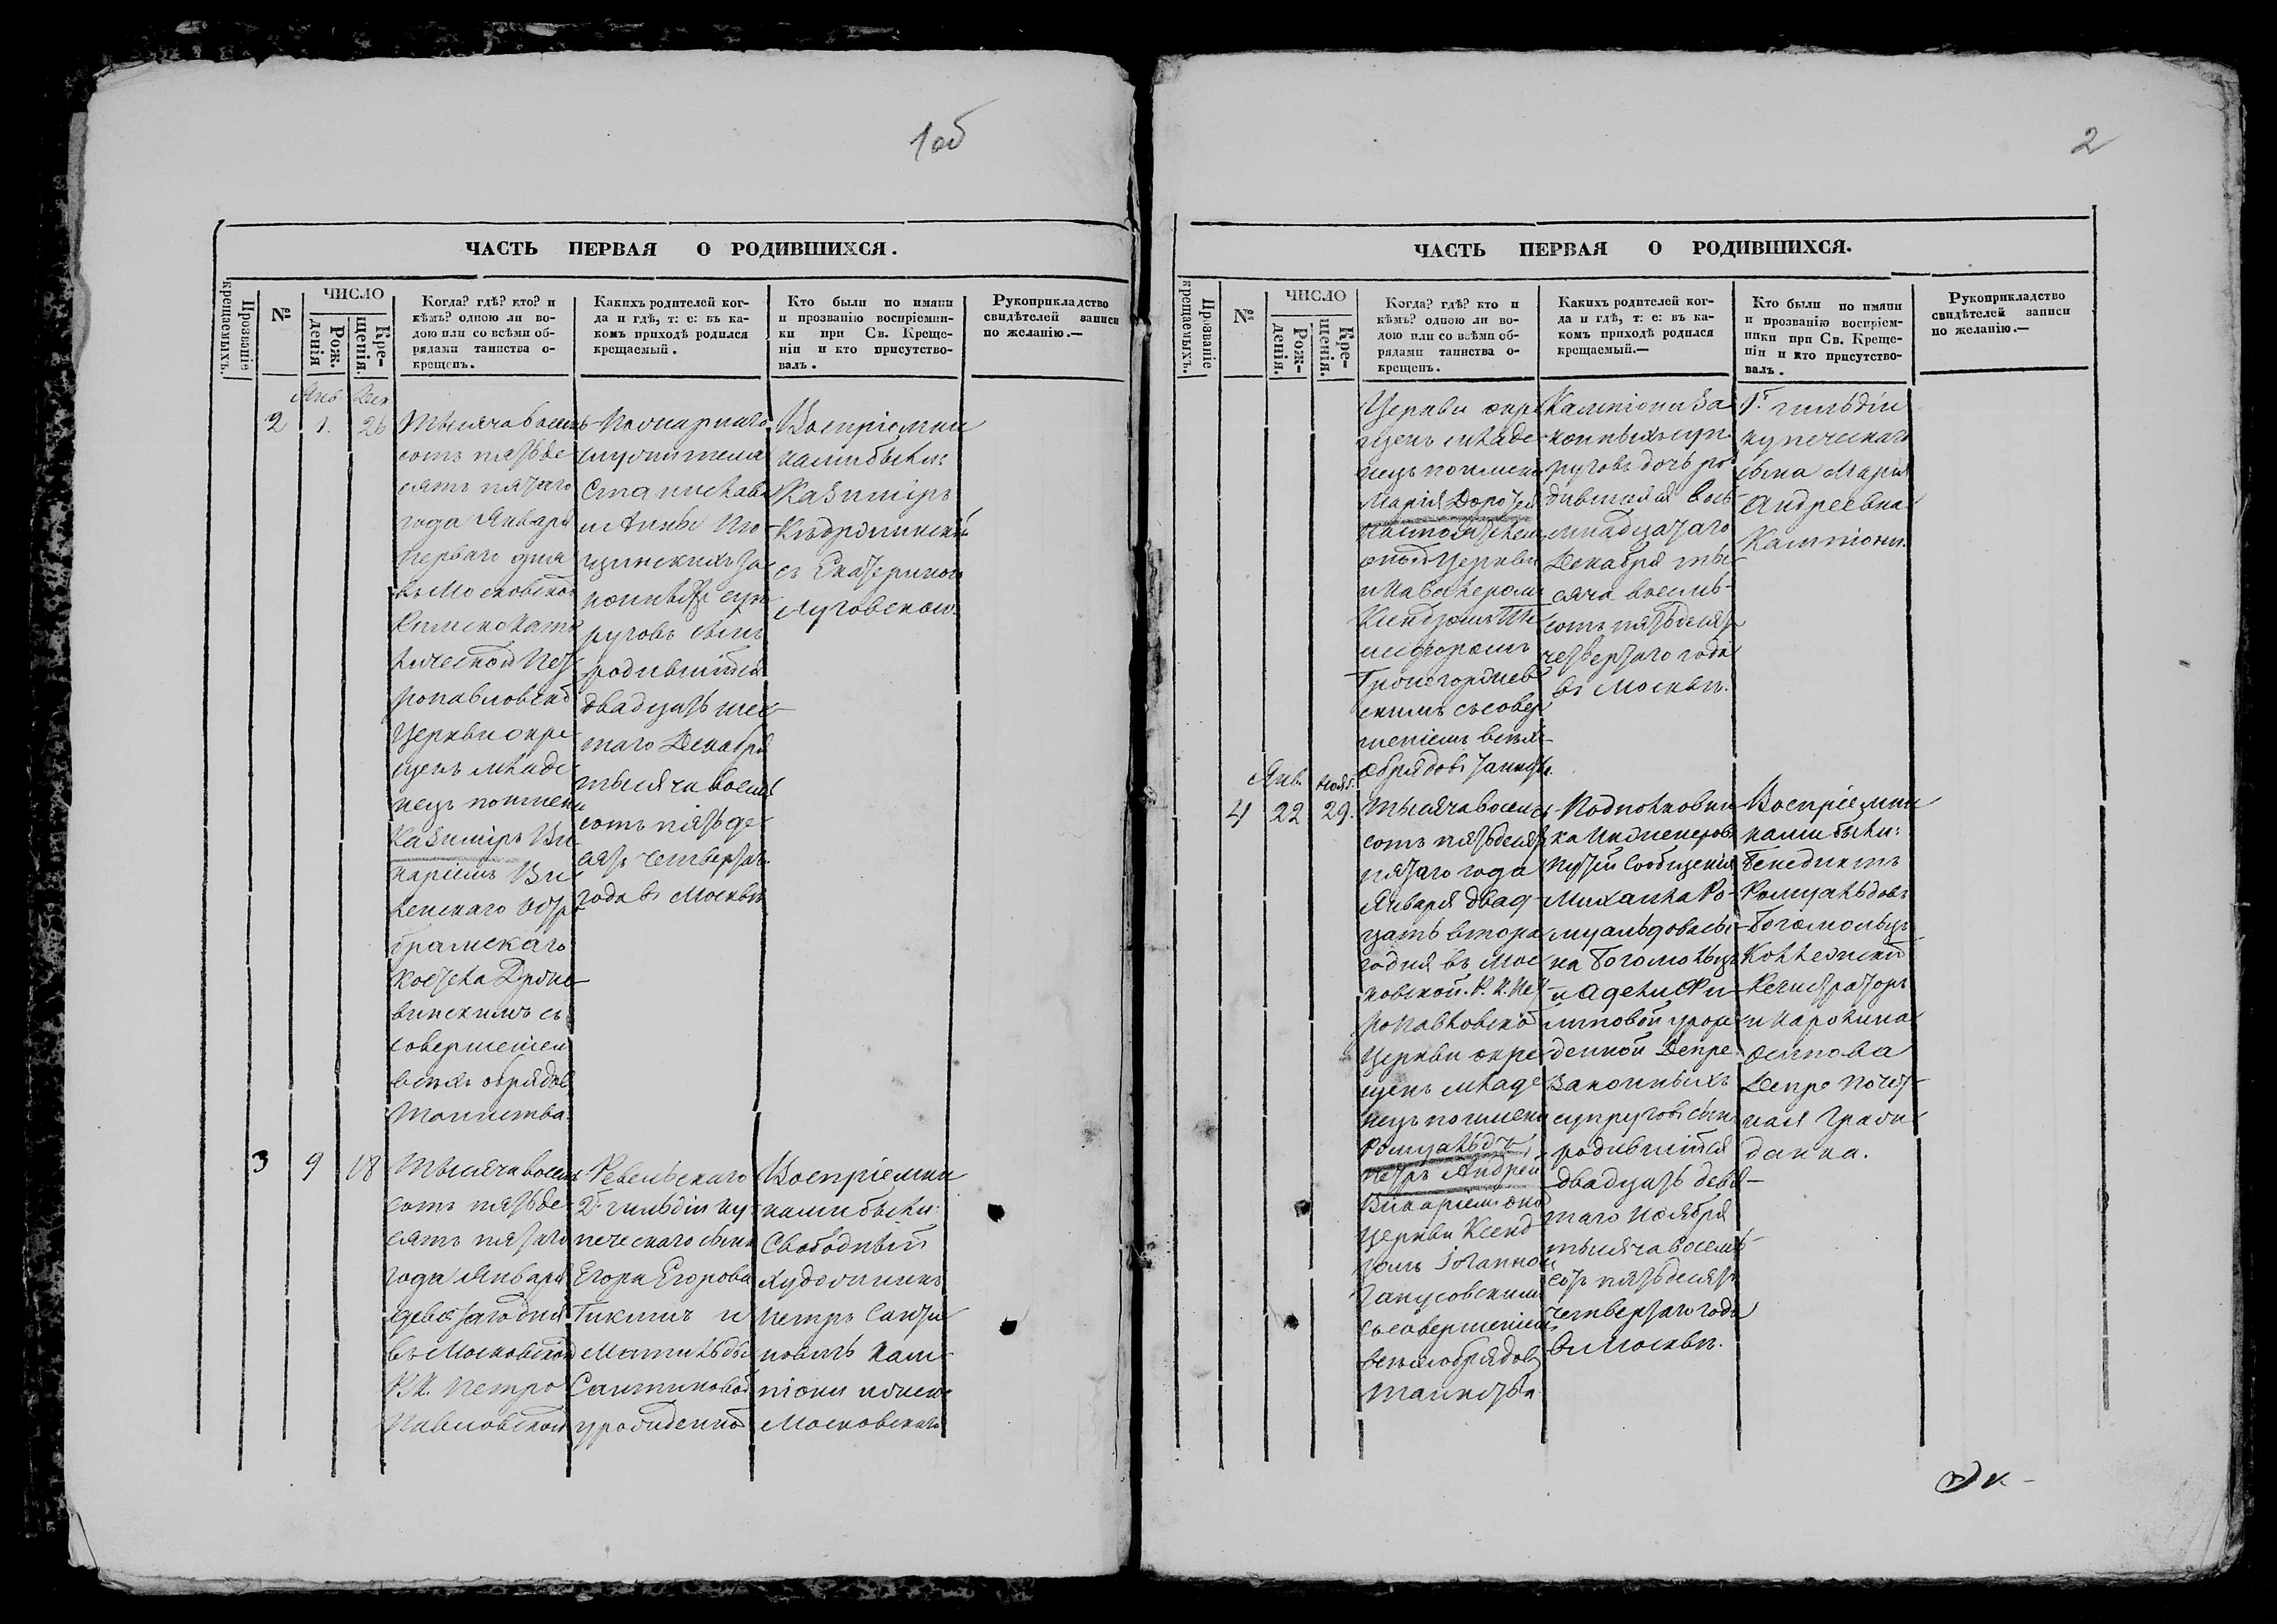 1об
ЧАСТЬ ПЕРВАЯ О РОДИВШИХСЯ.
Прозваніе крещаемыхъ.
№
ЧИСЛО
Рож-
денія
Кре-
щенія.
Когда? гдѣ? кто? и
кѣмъ? одною ли во-
дою или со всѣми об-
рядами таинства о-
крещенъ.
Какихъ родителей ког-
да и гдѣ, т: е: въ ка-
комъ приходѣ родился
крещаемый.
Кто были по имяни
и прозванію воспріемни-
ки при Св. Креще-
ніи и кто присутство-
валъ.
Рукоприкладство
свидѣтелей записи
по желанію.—
Янв. Дек
2 1. 26
Тысяча восемь
сотъ пятьде
сятъ пятаго
года Января
перваго дня
въ Московской
Римско Като
лической Пет
ропавловской
Церкви окре
щенъ младе
нецъ по имени
Казиміръ Ви
каріемъ Ви
ленскаго
костела
винскимъ съ
совершеніем
всѣхъ обрядов
Таинства.
Пожарнаго
служителя
Станислава
и Анны
цинскихъ за
конныхъ суп
руговъ сынъ
родившійся
двадцать шес
таго Декабря
тысяча восемь
сотъ пятьде
сятъ четвертаго
года въ Москвѣ
Воспріемни
ками были:
Казиміръ
съ Екатериною
Луговскою.
3 9 18
Тысяча восемь
сотъ пятьде
сятъ пятаго
года Января
девятаго дня
въ Московской
Р.К. Петро
Павловской
Ревельскаго
2й гильдіи ку
печескаго сына
Егора Егорова
и
Матильды
Сантиновой
урожденной
Воспріемни
ками были:
Свободный
художникъ
Петръ Санти
новичъ Кам
піони и жена
Московскаго
2
ЧАСТЬ ПЕРВАЯ О РОДИВШИХСЯ.
Прозваніе крещаемыхъ.
№
ЧИСЛО
Рож-
денія.
Кре-
щенія.
Когда? гдѣ? кто и
кѣмъ? одною ли во-
дою или со всѣми об-
рядами таинства о-
крещенъ.
Какихъ родителей ког-
да и гдѣ, т: е: въ ка-
комъ приходѣ родился
крещаемый.—
Кто были по имяни
и прозванію воспріем-
ники при Св. Креще-
ніи и кто присутство-
валъ.
Рукоприкладство
свидѣтелей записи
по желанію.—
Церкви окре
щенъ младе
нецъ по имени
Марія Доротея
Настоятелемъ
оной Церкви
и Кавалеромъ
Ксендзомъ
скимъ съ совер
шеніемъ всѣхъ
обрядовъ таинства.
Кампіони за
конныхъ суп
руговъ дочь ро
дившаяся вось
мнадцатаго
Декабря ты
сяча восемь
сотъ пятьдесят
четвертаго года
въ Москвѣ.
1й гильдіи
купеческаго
сына Марія
Андреевна
Кампіони.
Янв. Нояб.
4 22 29.
Тысяча восемь
сотъ пятьдесят
пятаго года
Января двад
цать втора
го дня въ Мос
ковской. Р. К. Пет
ропавловской
Церкви окре
щенъ младе
нецъ по имени
Ромуальдъ,
Петръ Андрей
Викаріемъ оной
Церкви Ксенд
зомъ Іоанномъ
съ совершеніемъ
всѣхъ обрядовъ
таинства
Подполковни
ка Инженеровъ
Путей Сообщенія
Михаила Ро
муальдова сы
на Богомольца
и Адели Фи
липовой урож
денной Депре
законныхъ
супруговъ сынъ
родившійся
двадцать девя
таго Ноября
тысяча восемь
сотъ пятьдесят
четвертаго года
въ Москвѣ.
Воспріемни
ками были:
Бенедиктъ
Ромуальдовъ
Богомолецъ
Коллежскій
Регистраторъ
и Каролина
Осипова
Депре почет
ная граж
данка.